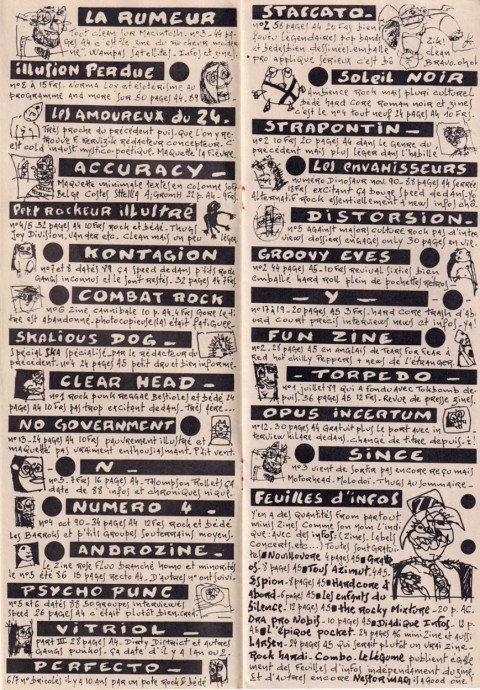 LA RUMEUR
Tout clean sur Macintosh. no3 - 44 pages A4
Wampas Satellites. Info et
ILLUSION PERDUE
no2 à 15 Frs. Norma Loy et ésotérisme au
programme and more sur 50 pages A4. 89
LES AMOUREUX DU 24.
Très proche du précédent puisque l'on y re-
trouve E. Kervizik rédacteur concepteur. C'
est cold indust mystico-poétique. Maquette
ACCURACY -
Maquette minimale textes en colonne
Belge Costes Stella
PETIT ROCKEUR ILLUSTRÉ
no4/5. 32 pages A4 10 Frs rock et bédé. Thugs
Joy Division, Van der etc. Clean mais un peu léger.
KONTAGION
datés 89 ça speed dedans p'tits rock
gangs inconnus et le sont restés. 32 pages A4
COMBAT ROCK
no6 zine cannibale 10 p. A4. 4 Frs Gore le ti-
tre est abandonné. photocopieuse était fatiguée.
SKALIOUS DOG -
Spécial SKA spécialisé par le rédacteur du
précédent. no4 24 pages A5 petit dru et bien informé.
CLEAR HEAD -
no1 rock punk reggae bestiole et bédé 24
pages A4 10 Frs pas trop excitant dedans. Très
NO GOVERNMENT
no13 - 24 pages A4 10 Frs pauvrement illustré et
maquetté pas vraiment enthousiasmant. P'tit vent.
- N -
no3. 7 Frs 16 pages A4. Thompson Rollets ça
date de 88 infos et chroniques nique.
NUMERO 4 -
no4 oct 90 - 34 pages A4 12 Frs rock et bédé
Les Barrocks et p'tits groupes souterrains moyens.
ANDROZINE -
Le zine rose fluo branché homo et minorités
le no5 été 86 18 pages recto A4. D'autres n'ont suivi.
PSYCHO PUNC
no5 et 6 datés 88 50 groupes interviewés
Speed 26 pages A4 c'était plutôt bien
VITRIOL -
part III 28 pages A4. Dirty District et autres
gangs punkos. Ça date d'il y a 1 an ou 2.
PERFECTO -
6/7 no bricolés il y a 10 ans par un pote rock & bédé
STACCATO -
no2 58 pages A4 20 Frs bien
foutu légendaires top band
et bédés bien dessinées emballé
pro applique sérieux c'est
Zik!
Clean
Bravo.
SOLEIL NOIR
Ambiance Rock mais pluri culturel
bédé hard core roman noir et zines
c'est le no4 tout neuf 24 pages A4 10 Frs.
STRAPONTIN -
no2 10 Frs 20 pages A4 dans le genre du
précédent mais plus léger dans l'habillé
LES ENVAHISSEURS
numéro Dinosaur nov. 90 - 88 pages A4 serré
15 Frs excitant ça bouge speed dedans,
Alternatif Rock essentiellement & news info ch8.
DISTORSION -
no5 against major culture rock pas d'inter
views dossiers engagés only 30 pages en vie.
GROOVY EYES
no2 44 pages A5 - 10 Frs revival sixtie bien
emballé hard roll plein de pochettes rétros
- Y -
no17 à 19 - 20 pages A5 3 Frs. hard core trash d'ab
ord court précis interviews news et infos - ya!
FUN ZINE
no2 - 28 pages A5 en anglais de Tears for Fear à
Red Hot Chily Peppers & news de l'étranger.
- TORPEDO -
no1 juillet 89 qui a fondu avec Tokbomb de-
puis. 36 pages A5 12 Frs. Revue de presse zines.
OPUS INCERTUM
no12. 30 pages A4 gratuit plus le port avec in
terview hilare dedans... change de titre depuis
SINCE
no3 vient de sortir pas encore reçu mais
Motorhead. Molodoï. Thugs au sommaire -
FEUILLES D'INFOS
Y'en a des quantités from partout
minis zines comme son nom l'indi-
que: avec des infos: (zines, labels
concerts, etc...) Toutes sont gratui-
tes Nouillovore 4 pages A5
os - 8 pages A5 Tous Azimut. A5
Espion - 8 pages A5 Hardcore d'
abord - 6 pages A5 Les enfants du
silence - 12 pages A5 The Rocky Mixture - 20 p. A6
Ora pro Nobis - 10 pages A5 Diadique Infos - 12 p.
A5 L'épique pocket. 24 pages A6 mini zine et aussi
Larsen - 24 pages A5 qui serait plutôt un vrai zine -
Rock hardi. Combo. Le Légume publient égale
ment des feuilles d'infos indépendamment du zine.
Et d'autres encore Nestor Mag is good one!